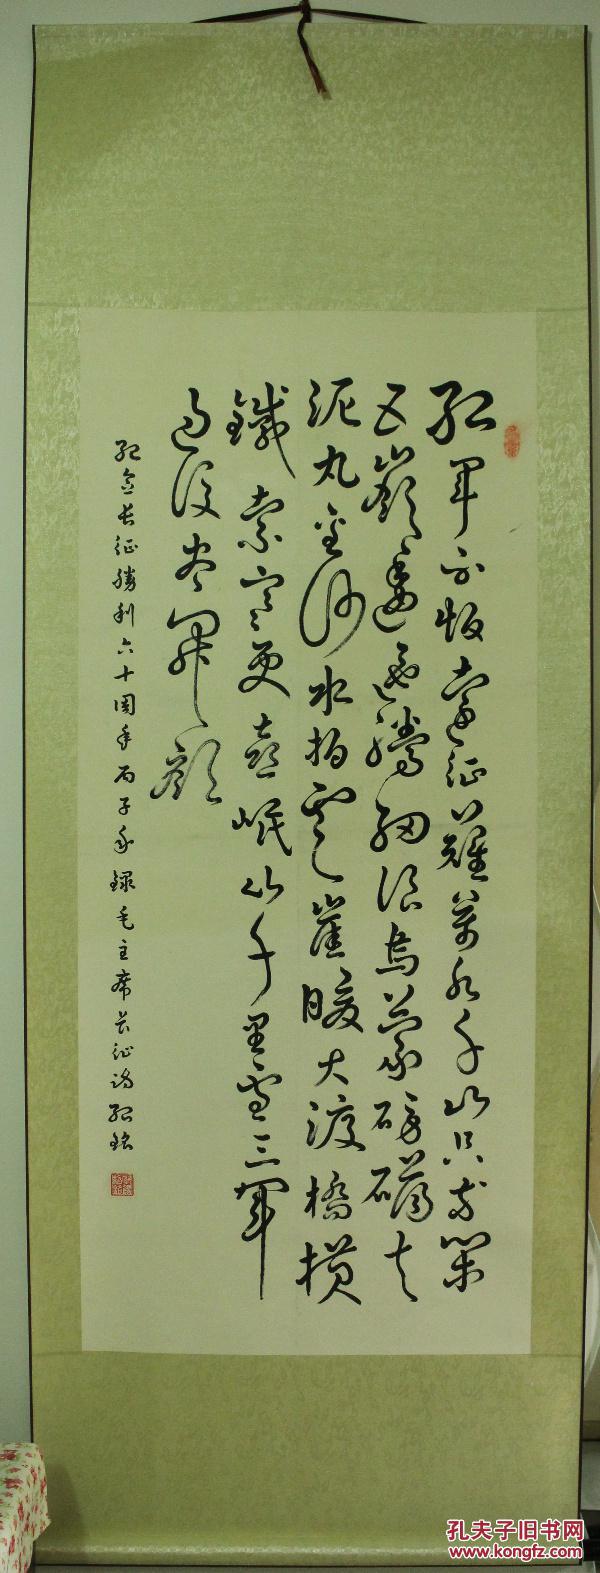 红军不怕远征难萬水千山只等闲
五嶺逶迤腾细浪乌蒙磅礴走
泥丸金沙水拍云崖暖大渡橋横
鐵索寒更喜岷山千里雪三军
过後尽開颜
纪念长征勝利六十周年丙子年録毛主席长征诗
孔夫子旧书网
www.kongfz.com